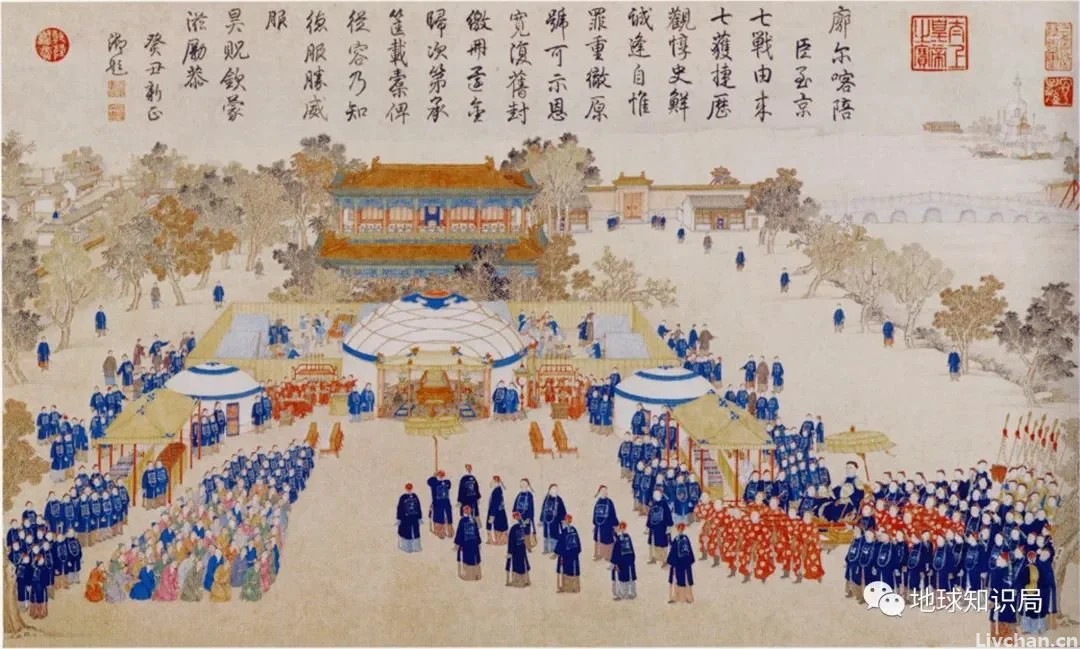 太上皇帝之寶
廓尔喀陪
臣至京
七戰由来
七獲捷歷
觀惇史鮮
誠逢自惟
罪重徹原
號可示恩
寬復舊封
繳冊還金
歸次第承
筐載橐俾
從容乃知
德服勝威
服
昊貺欽蒙
滋勵恭
癸丑新正
御題
地球知识局
Livchan.cn